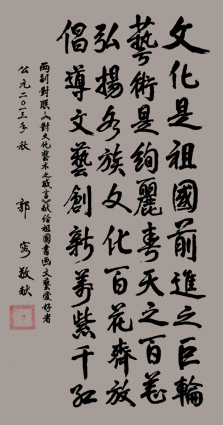 文化是祖國前進之巨輪
藝術是絢麗春天之百花
弘揚各族文化百花齊放
倡導文藝創新萬紫千紅
兩副對联《對文化藝术之感言》献给祖國書画文藝爱好者
公元二〇一三年秋
郭 寓敬献